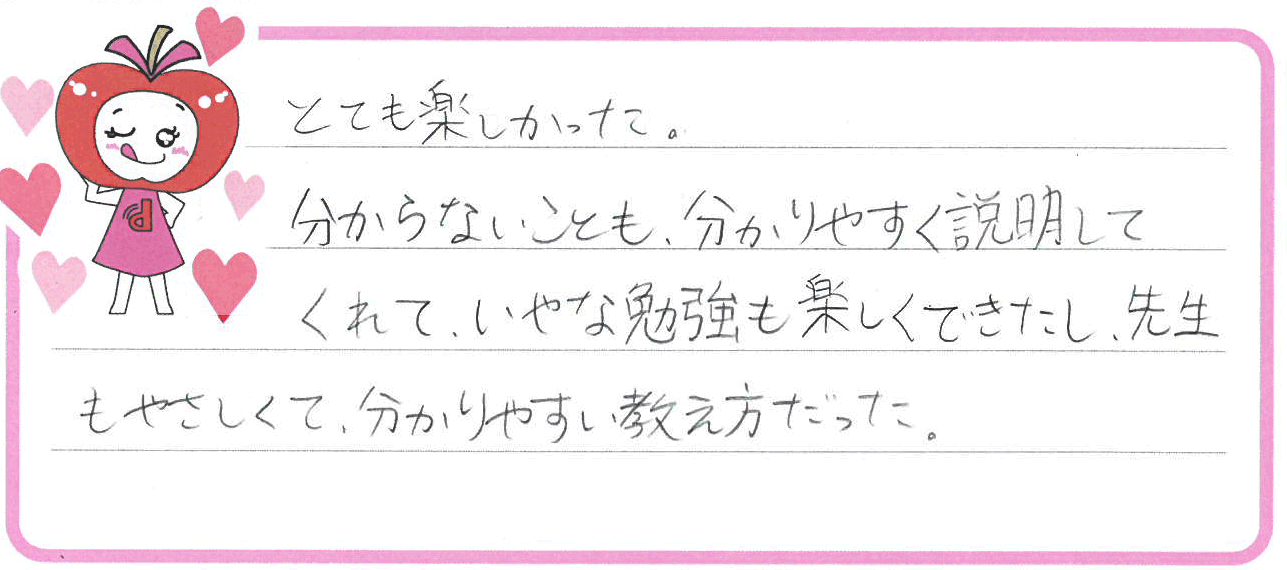 とても楽しかった。
分からないことも、分かりやすく説明して
くれて、いやな勉強も楽しくできたし、先生
もやさしくて、分かりやすい教え方だった。